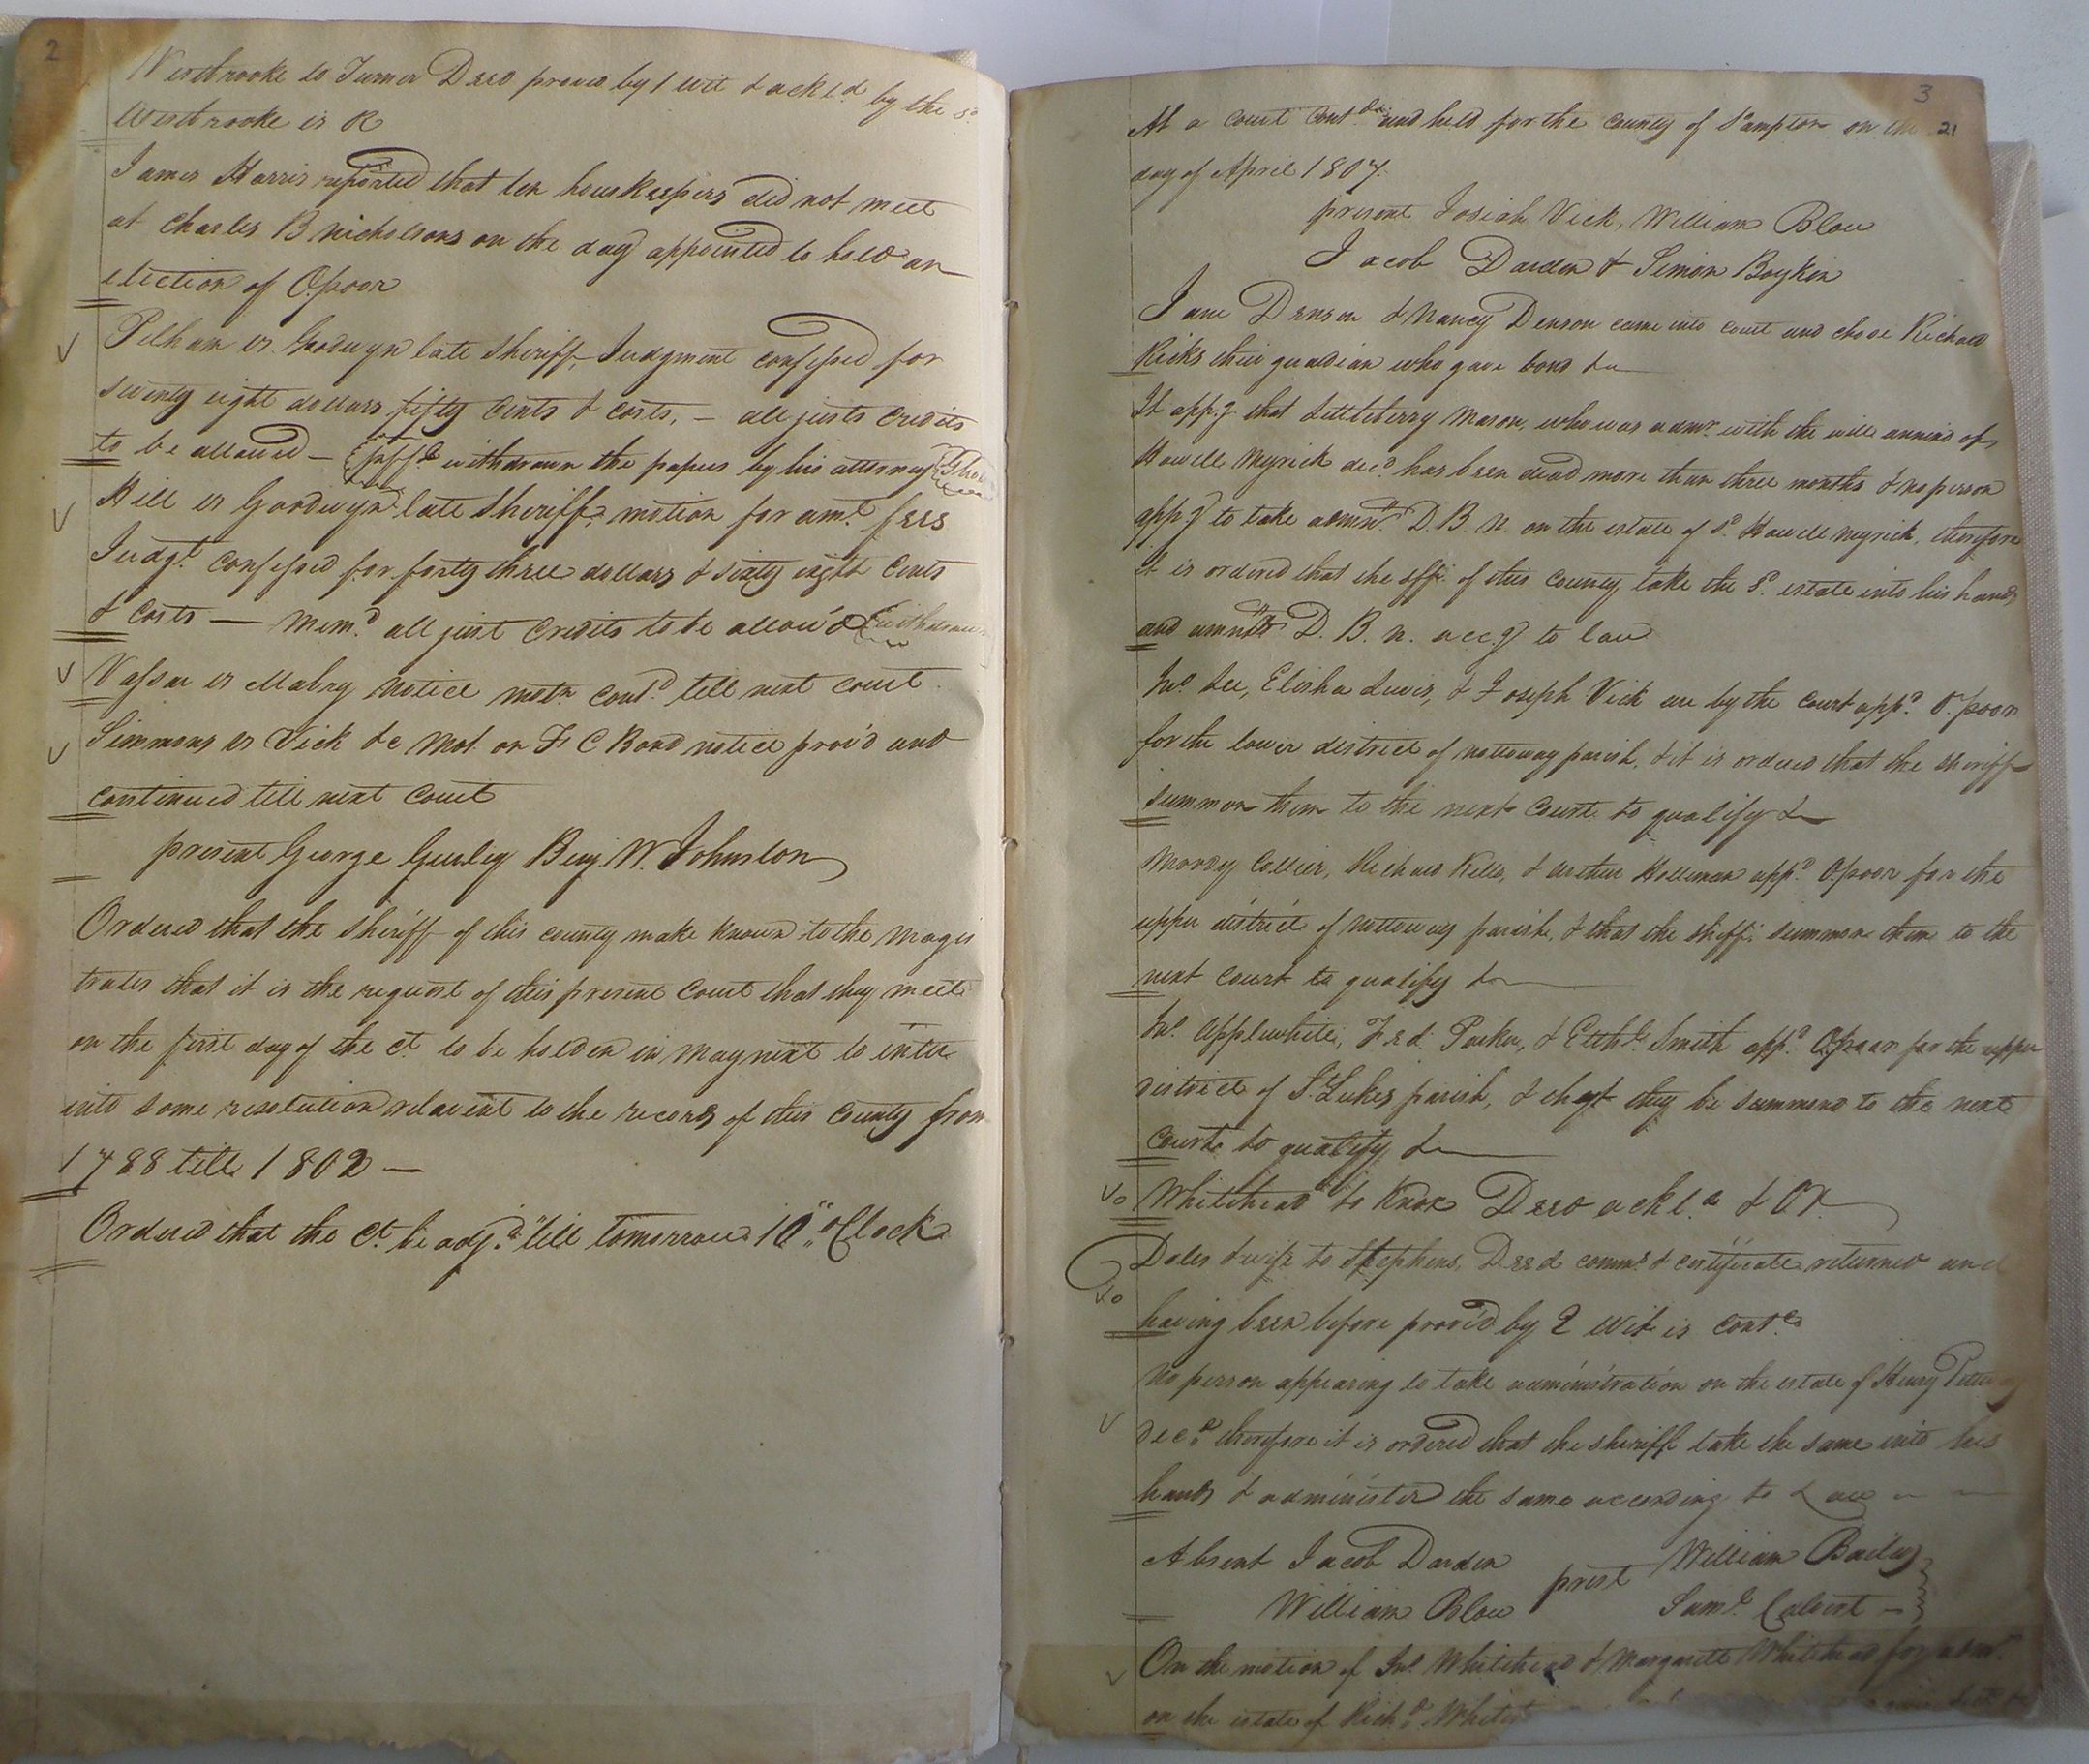 2
Westbrooke to Turner Deed proved by 1 wit & ackld by the sd
Westbrooke is R
James Harris reported that ten houskeepers did not meet
at Charles B Nicholsons on the day appointed to hold an
election of O.poor
Pelham vs Goodwyn late Sheriff, Judgment confessed for
seventy eight dollars fifty Cents & costs, — all justs Credits
to be allowed — withdrawn the papers by his attorney
Hill vs Goodwyn late Sheriff, motion for amt. fees
Judgt. confessed for forty three dollars & sixty eight Cents
& Costs — Memd. all just Credits to be allow'd withdrawn
Vasser vs Mabry Notice motn. contd. till next court
Simmons vs Vick &c Mot. on F C Bond notice prov'd and
continued till next Court
present George Gurley Benj. W. Johnston
Ordered that the Sheriff of this county make known to the Magis
trates that it is the request of this present Court that they meet
on the first day of the Ct. to be holden in May next to enter
into some resolution relavent to the records of this County from
1788 till 1802 —
Ordered that the Ct. be adjd. till tomorrow 10 "oClock
3
At a court Contd. and held for the County of S'ampton on the 21
day of April 1807.
present Josiah Vick, William Blow
Jacob Darden & Simon Boykin
Jane Denson & Nancy Denson came into court and chose Richard
Ricks their guardian who gave bond &c
It appg. that Littleberry Mason, who was admr. with the will annexd of
Howell Myrick decd. has been dead more than three months & no person
appg. to take admn. D. B. N. on the estate of sd. Howell Myrick, therefore
it is ordered that the shff. of this County take the sd. estate into his hands
and D. B. N. accg. to law
Jno. Lee, Elisha Lewis, & Joseph Vick are by the Court appd. O. poor
for the lower district of Nottoway parish, & it is ordered that the sheriff
summon them to the next Court to qualify &c
Moody Collier, Richard Kello, & Arthur Holliman appd. O.poor for the
upper district of Nottoway parish, & that the shff. summon them to the
next Court to qualify &c
Jno. Applewhite, Fred. Parker, & Ethd. Smith appd. O.poor for the upper
district of St. Lukes parish, & that they be summond to the next
Court to qualify &c
Whitehead to Knox Deed ackld. & OR.
Doles & wife to Stephens, Deed commn. & certificate returned and
having been before proov'd by 2 wit. is contd.
No person appearing to take administration on the estate of Henry
decd. therefore it is ordered that the sheriff take the same into his
hands & administer the same according to Law
Absent Jacob Darden prest William Bailey
William Blow Saml. Calvert —
On the motion of Jno. Whitehead & Margarett Whitehead for admn.
on the estate of Richd.